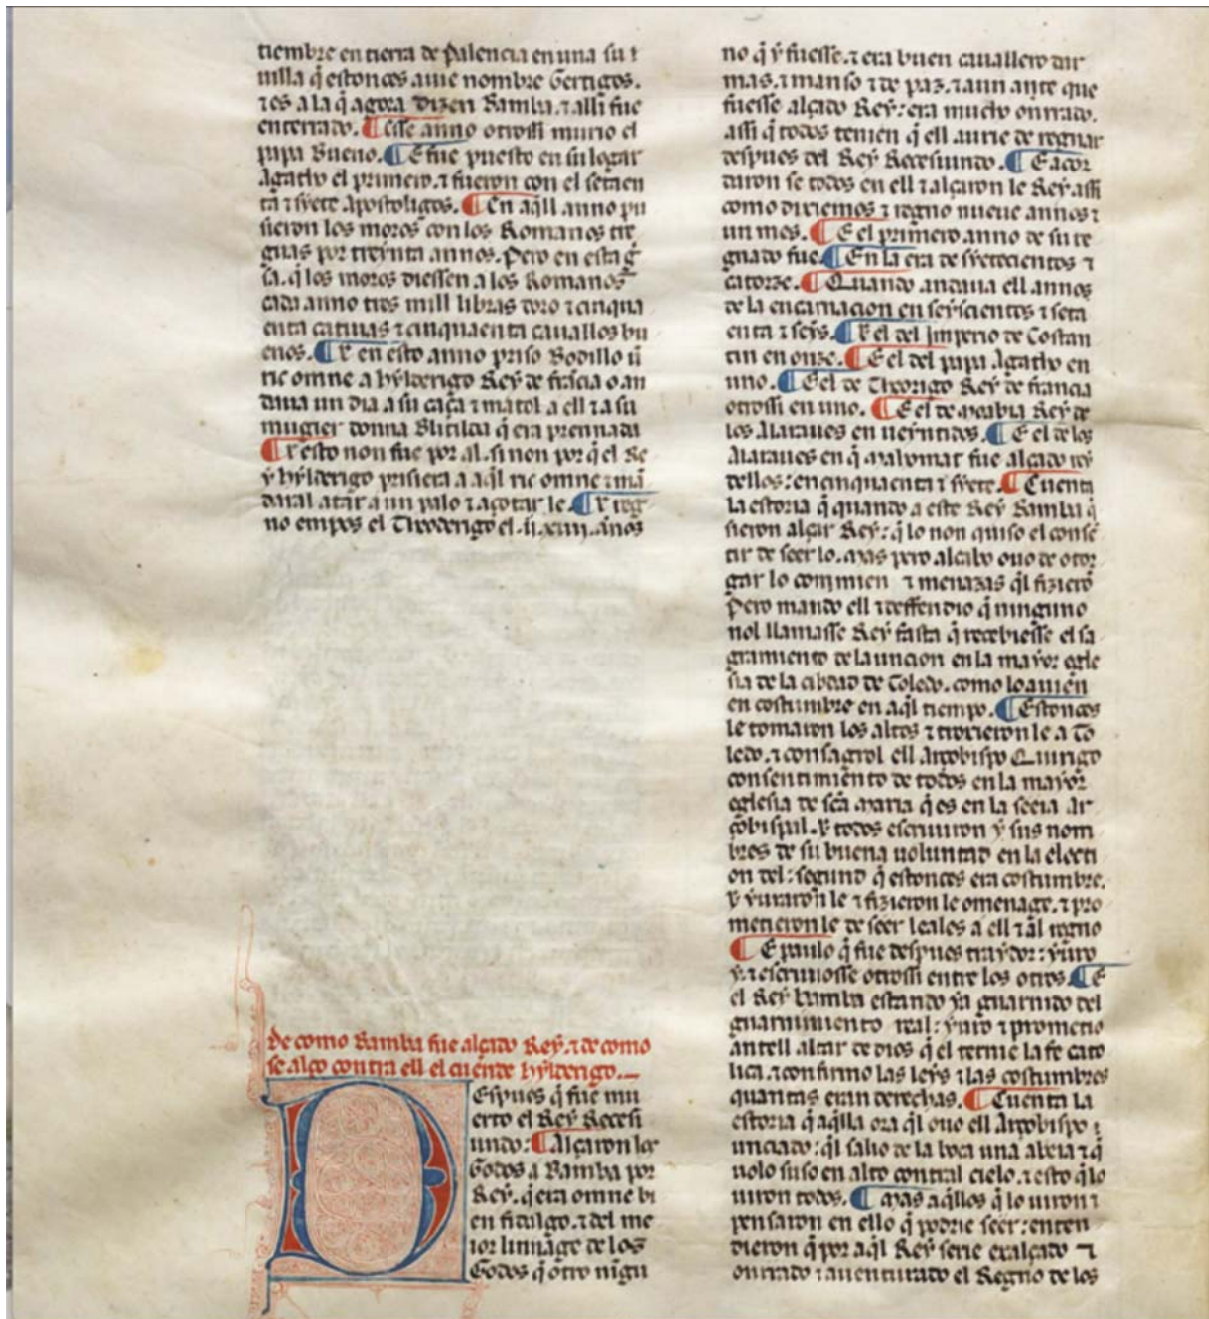 tiembre en tierra de Palencia en una su t
uilla q̃ estonces auie nombre Gertigos.
⁊ es a la q̃ agora dizen Bamba. ⁊ alli fue
enterrado. ¶ Esse anno otrossi murio el
papa Bueno. ¶ E fue puesto en su logar
Agatho el primero. ⁊ fueron con el setaen
ta ⁊ syete Apostoligos. ¶ En aq̃ll anno pu
sieron los moros con los Romanos tre
guas por treynta annos. Pero en esta g̃
sa. q̃ los moros diessen a los Romanos
cada anno tres mill libras doro ⁊ cinqua
enta catiuas ⁊ cinquaenta cauallos bu
enos. ¶ E en esto anno priso Bodillo ũ
ric omne a hylderigo Rey de frãcia o an
daua un dia a su caça ⁊ matol a ell ⁊ a su
mugier donna Blitilda q̃ era prennada
¶ E esto non fue por al. si non por q̃ el Re
y hylderigo prisiera a aq̃l ric omne ⁊ mã
daral atar a un palo ⁊ açotar le. ¶ E reg
no empos el Theoderigo el .ii. xiiii. annos
de como Bamba fue alçado Rey. ⁊ de como
se alço contra ell el cuende hylderigo.
Espues q̃ fue mu
erto el Rey Recesi
undo: ¶ Alçaron los
Godos a Bamba por
Rey. q̃ era omne bi
en fidalgo. ⁊ del me
ior linnage de los
Godos q̃ otro nigũ
no q̃ y fuesse. ⁊ era buen cauallero dar
mas. ⁊ manso ⁊ de paz. ⁊ aun ante que
fuesse alçado Rey: era mucho onrrado.
assi q̃ todos tenien q̃ ell aurie de regnar
despues del Rey Recesiundo. ¶ E acor
daron se todos en ell ⁊ alçaron le Rey. assi
como dixiemos ⁊ regno nueue annos ⁊
un mes. ¶ E el primero anno de su re
gnado fue ¶ En la era de syetecientos ⁊
catorze. ¶ Quando andaua ell annos
de la encarnacion en seyscientos ⁊ seta
enta ⁊ seys. ¶ E el del Imperio de Costan
tin en onze. ¶ E el del papa Agatho en
uno. ¶ E el de Theorigo Rey de francia
otrossi en uno. ¶ E el de moabia Rey de
los Alaraues en ueyntidos. ¶ E el de los
Alaraues en q̃ mahomat fue alçado rey
dellos: en cinquaenta ⁊ syete. ¶ Cuenta
la estoria q̃ quando a este Rey Bamba q̃
sieron alçar Rey: q̃ lo non quiso el consẽ
tir de seer lo. mas pero alcabo ouo de otor
gar lo ⁊ menazas q̃l fizierõ
Pero mando ell ⁊ deffendio q̃ ninguno
nol llamasse Rey fasta q̃ recebiesse el sa
gramiento de la uncion en la mayor egle
sia de la cibdad de Toledo. como lo auien
en costumbre en aq̃l tiempo. ¶ Estonces
le tomaron los altos ⁊ troxieron le a To
ledo. ⁊ consagrol ell Arçobispo Quirigo
consentimiento de todos en la mayor
eglesia de sc̃a maria q̃ es en la seeia Ar
çobispal. E todos escriuiron y sus nom
bres de su buena uoluntad en la electi
on del: segund q̃ estonces era costumbre.
E yuraron le ⁊ fizieron le omenage. ⁊ pro
metieron le de seer leales a ell ⁊ al regno
¶ E paulo q̃ fue despues traydor: yuro
y. ⁊ escriuiosse otrossi entre los otros. ¶ E
el Rey bamba estando ya guarnido del
guarnimiento real: yuro ⁊ prometio
antell altar de dios q̃ el ternie la fe cato
lica. ⁊ confirmo las leys ⁊ las costumbres
quantas eran derechas. ¶ Cuenta la
estoria q̃ aq̃lla ora q̃l ouo ell Arçobispo
unciado: q̃l salio de la boca una abeia ⁊ q̃
uolo suso en alto contral cielo. ⁊ esto q̃ lo
uiron todos. ¶ mas aq̃llos q̃ lo uiron ⁊
pensaron en ello q̃ podrie seer: enten
dieron q̃ por aq̃l Rey serie exalçado ⁊
onrrado ⁊ auenturado el Regno de los